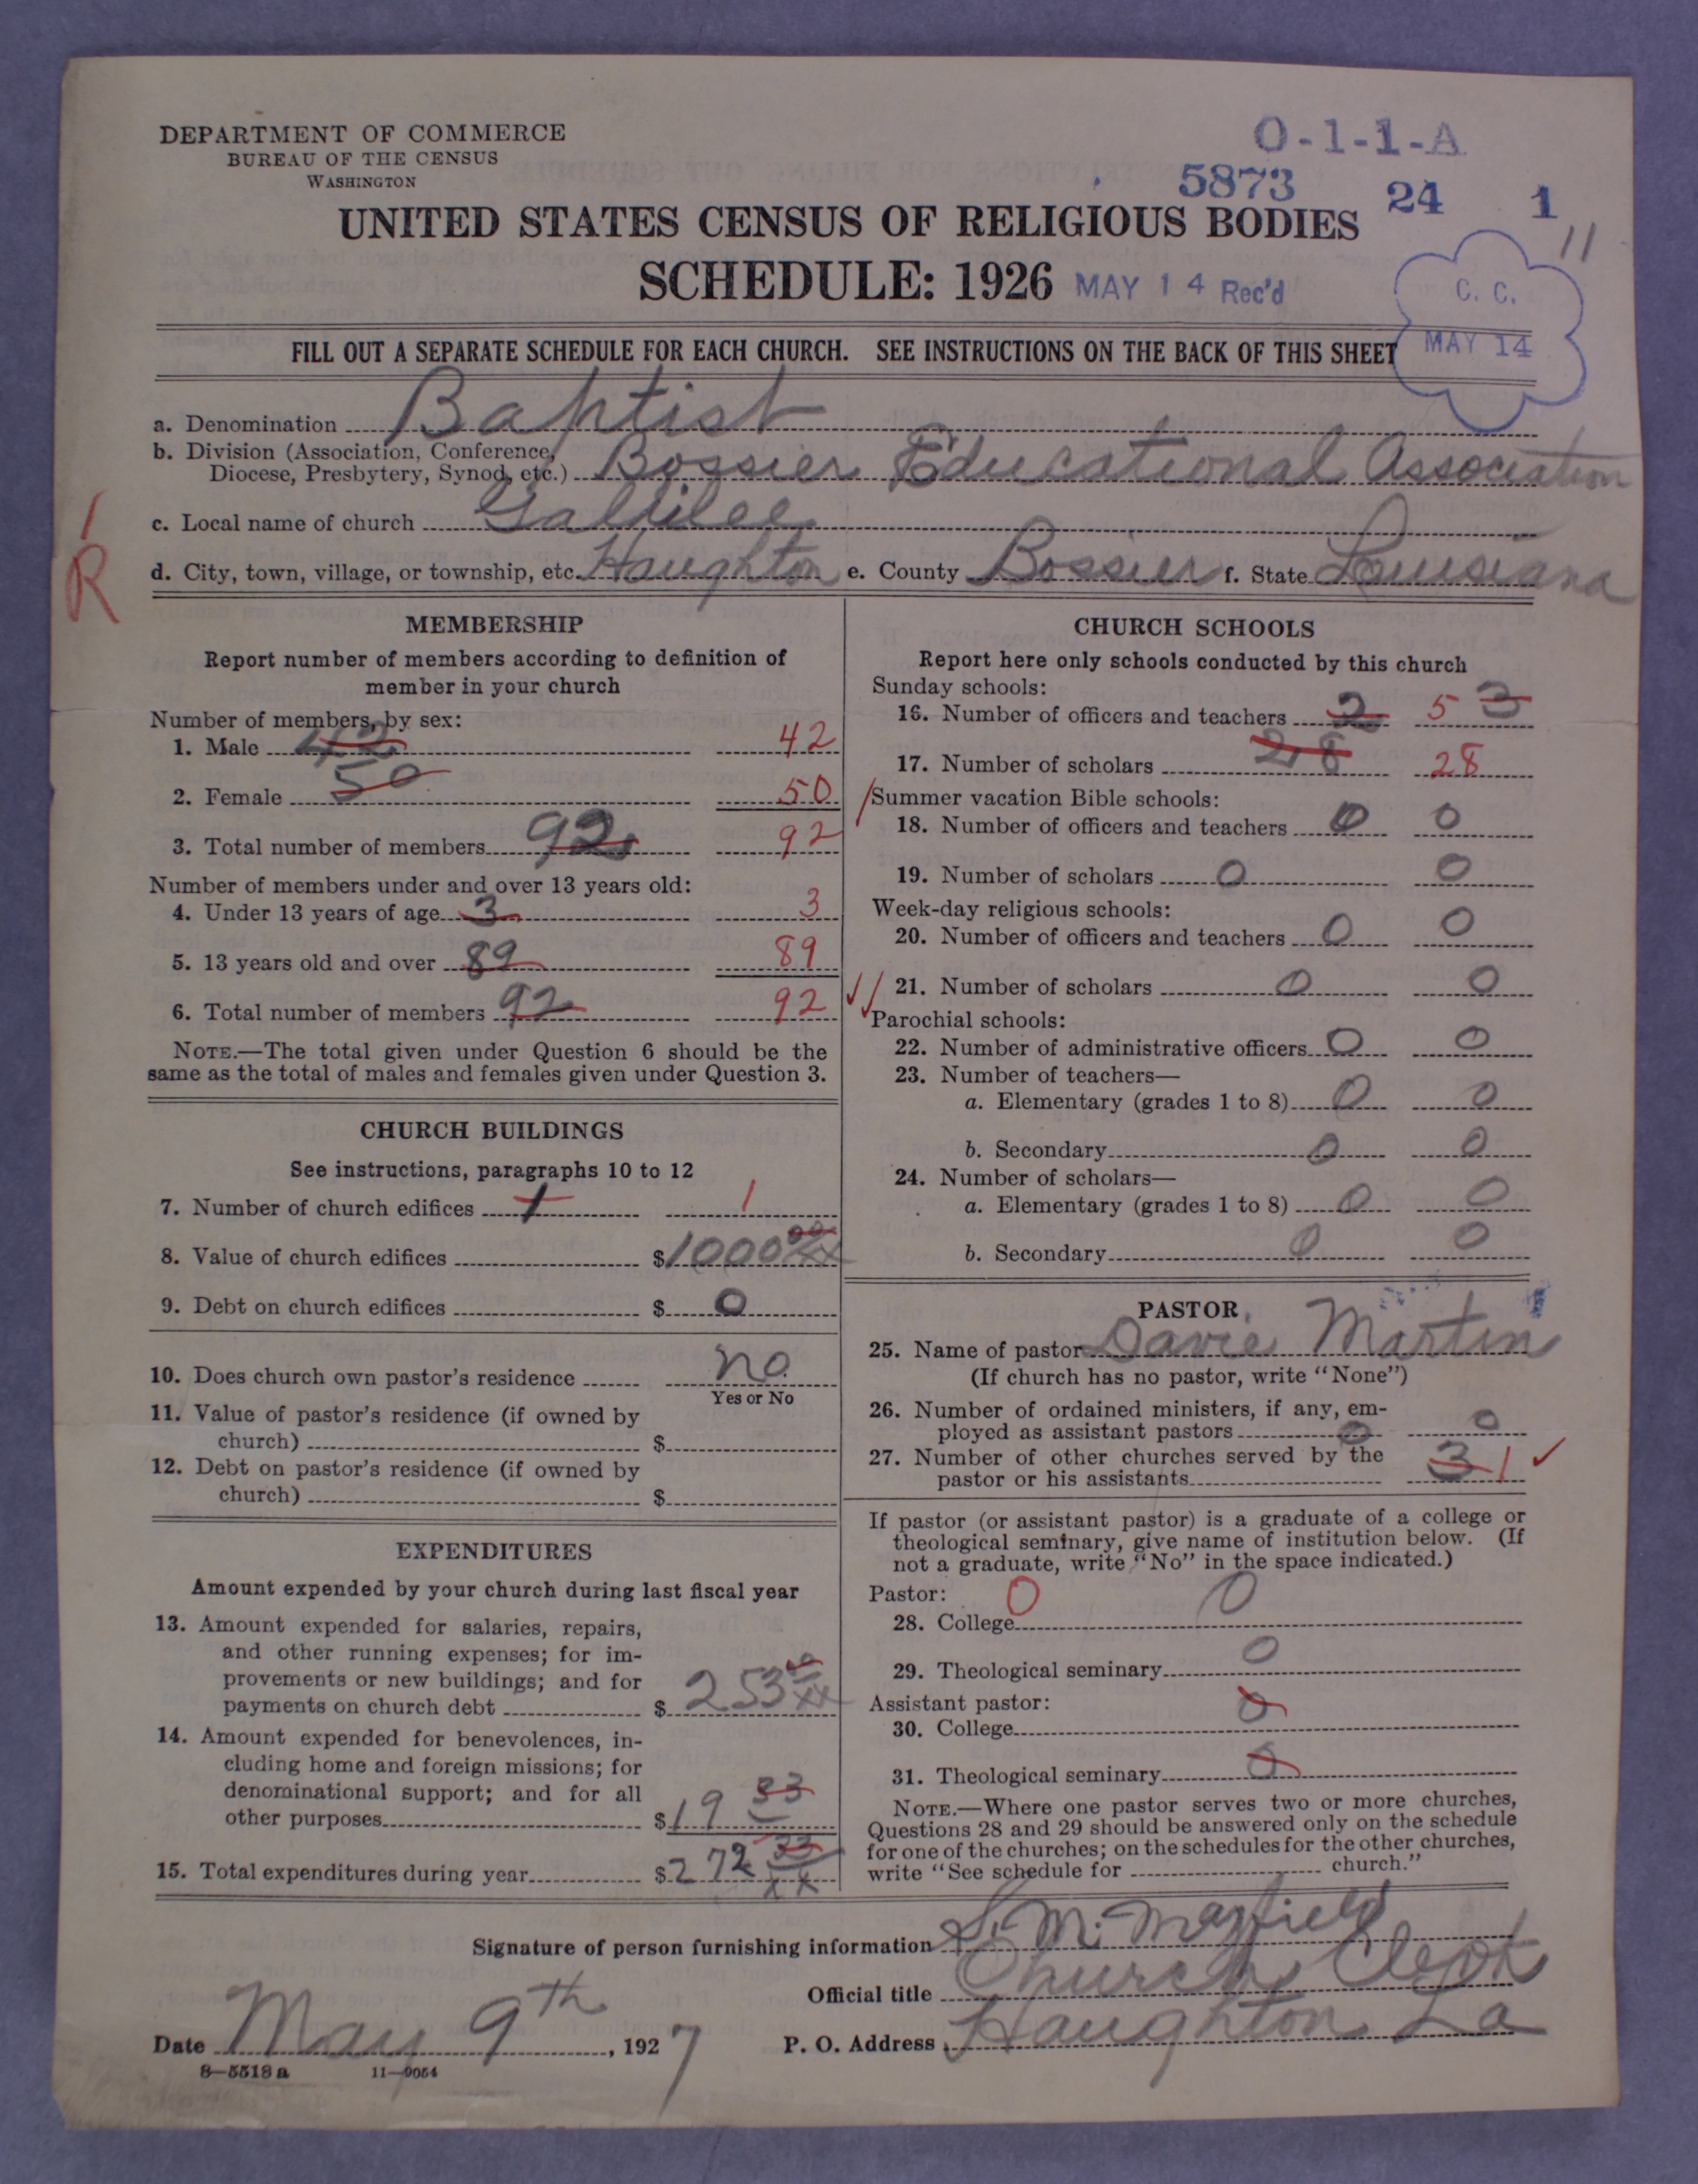 DEPARTMENT OF COMMERCE
BUREAU OF THE CENSUS
WASHINGTON
O-1-1-A
5873 24 1
11
UNITED STATES CENSUS OF RELIGIOUS BODIES
SCHEDULE: 1926 MAY 14 Rec'd
C. C.
MAY 14
FILL OUT A SEPARATE SCHEDULE FOR EACH CHURCH. SEE INSTRUCTIONS ON THE BACK OF THIS SHEET
a. Denomination Baptist
b. Division (Association, Conference, Diocese, Presbytery, Synod, etc.) Bossier Educational Association
c. Local name of church Gallilee
d. City, town, village, or township, etc. Haughton e. County Bossier f. State Louisiana
R
MEMBERSHIP
Report number of members according to definition of
member in your church
Number of members, by sex:
1. Male 42 42
2. Female 50 50
3. Total number of members 92 92
Number of members under and over 13 years old:
4. Under 13 years of age 3 3
5. 13 years old and over 89 89
6. Total number of members 92 92
NOTE.—The total given under Question 6 should be the
same as the total of males and females given under Question 3.
CHURCH BUILDINGS
See instructions, paragraphs 10 to 12
7. Number of church edifices 1 1
8. Value of church edifices $1000 00 xx
9. Debt on church edifices $ 0
10. Does church own pastor's residence no
Yes or No
11. Value of pastor's residence (if owned by
church) $
12. Debt on pastor's residence (if owned by
church) $
EXPENDITURES
Amount expended by your church during last fiscal year
13. Amount expended for salaries, repairs,
and other running expenses; for im-
provements or new buildings; and for
payments on church debt $ 253 00 xx
14. Amount expended for benevolences, in-
cluding home and foreign missions; for
denominational support; and for all
other purposes $19 33
15. Total expenditures during year $272 33 xx
CHURCH SCHOOLS
Report here only schools conducted by this church
Sunday schools:
16. Number of officers and teachers 2 5 3
17. Number of scholars 28 28
Summer vacation Bible schools:
18. Number of officers and teachers 0 0
19. Number of scholars 0 0
Week-day religious schools:
20. Number of officers and teachers 0 0
21. Number of scholars 0 0
Parochial schools:
22. Number of administrative officers 0 0
23. Number of teachers—
a. Elementary (grades 1 to 8) 0 0
b. Secondary 0 0
24. Number of scholars—
a. Elementary (grades 1 to 8) 0 0
b. Secondary 0 0
PASTOR
25. Name of pastor Davie Martin
(If church has no pastor, write "None")
26. Number of ordained ministers, if any, em-
ployed as assistant pastors 0 0
27. Number of other churches served by the
pastor or his assistants 3 1
If pastor (or assistant pastor) is a graduate of a college or
theological seminary, give name of institution below. (If
not a graduate, write "No" in the space indicated.)
Pastor: 0
28. College 0
29. Theological seminary 0
Assistant pastor:
30. College 0
31. Theological seminary 0
NOTE.—Where one pastor serves two or more churches,
Questions 28 and 29 should be answered only on the schedule
for one of the churches; on the schedules for the other churches,
write "See schedule for church."
Signature of person furnishing information S. M. Mayfield
Official title Church Clerk
Date May 9th, 1927 P. O. Address Haughton La
8—5518 a 11—9054